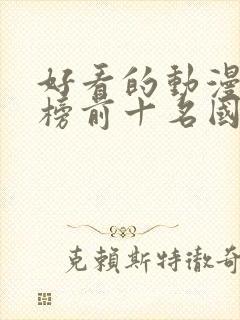 好看的動漫
榜前十名國
克賴斯特徹奇